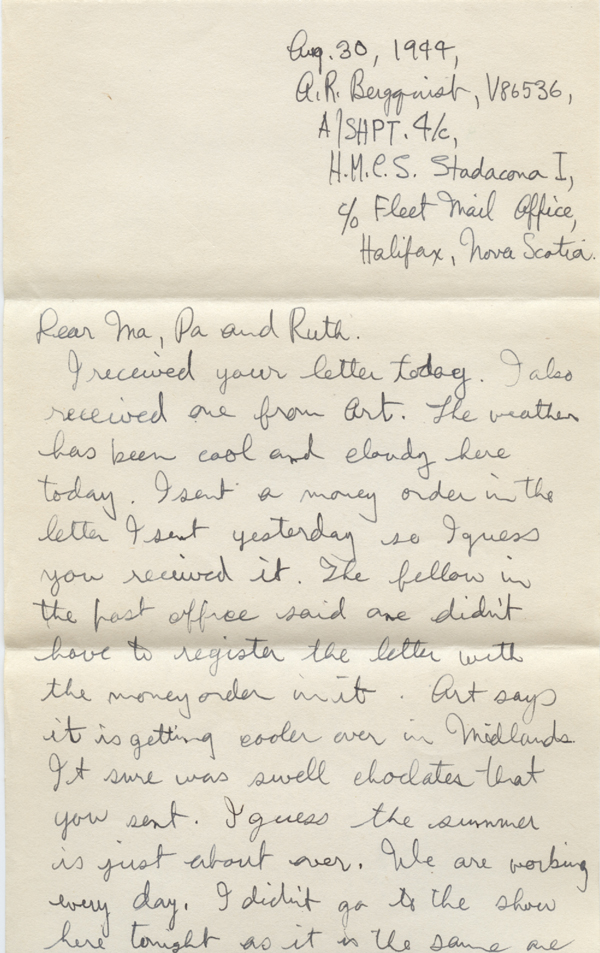 Aug. 30, 1944,
A.R. Bergquist, V86536,
A/SHPT. 4/c,
H.M.C.S. Stadacona I,
c/o Fleet Mail Office,
Halifax, Nova Scotia.
Dear Ma, Pa and Ruth.
I received your letter today. I also
received one from Art. The weather
has been cool and cloudy here
today. I sent a money order in the
letter I sent yesterday so I guess
you received it. The fellow in
the post office said one didn't
have to register the letter with
the money order in it. Art says
it is getting cooler over in Midlands.
It sure was swell choclates that
you sent. I guess the summer
is just about over. We are working
every day. I didn't go to the show
here tonight as it is the same one